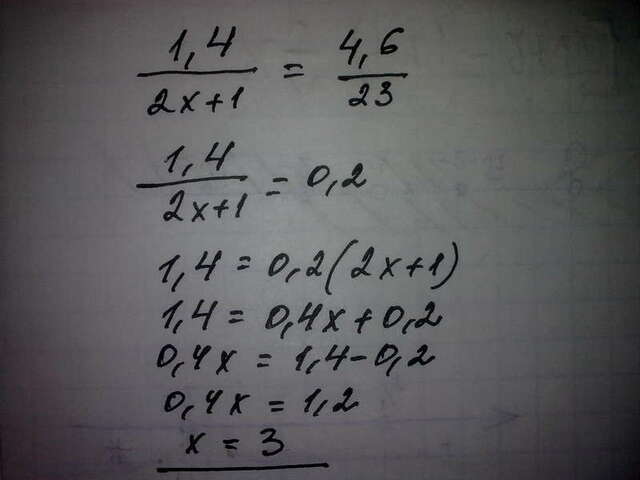 1,4/(2x+1) = 4,6/23
1,4/(2x+1) = 0,2
1,4 = 0,2(2x+1)
1,4 = 0,4x+0,2
0,4x = 1,4-0,2
0,4x = 1,2
x = 3